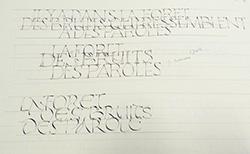 IL Y A DANS LA FORET
DES BRUITS QUI RESSEMBLENT
A DES PAROLES
LA FORET
DES BRUITS
DES PAROLES
LA FORET
DES BRUITS
DES PAROLE